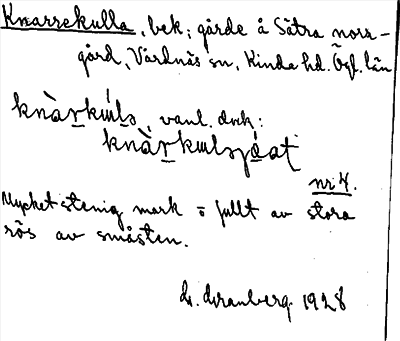 Knarrekulla, bek; gärde å Sätra norr-
gård, Vårdnäs sn, Kinda hd. Ögl. län
vanl. dock:
nr 4.
Mycket stenig mark o fullt av stora
rös av småsten.
1928